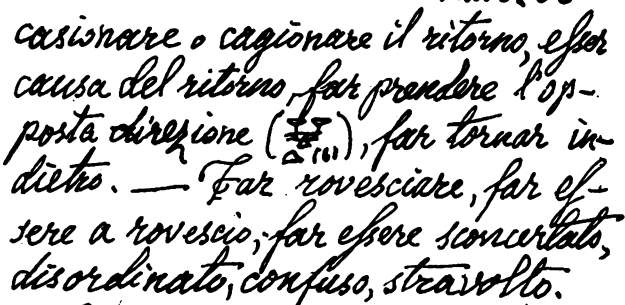 casionare o cagionare il ritorno, esser
causa del ritorno, far prendere l'op-
posta direzione ( ), far tornar in-
dietro. — Far rovesciare, far es-
sere a rovescio; far essere sconcertato,
disordinato, confuso, stravolto.